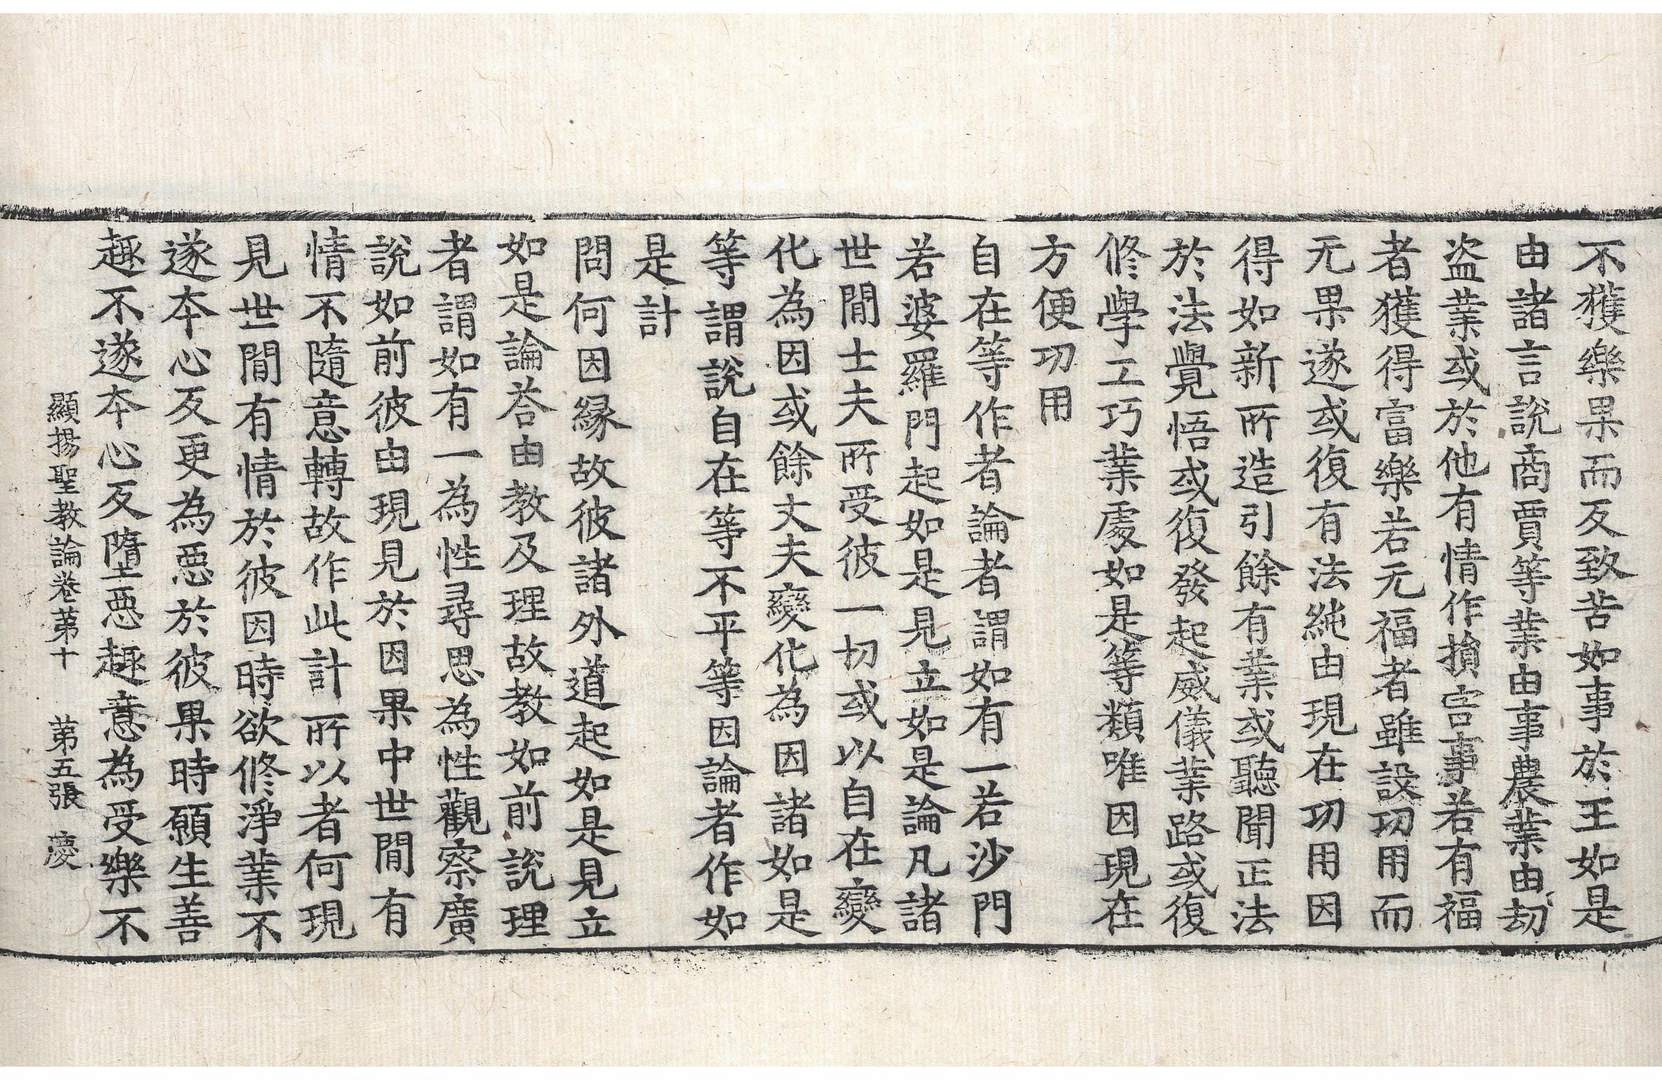 不獲樂果而反致苦如事於王如是
由諸言說商賈等業由事農業由劫
盗業或於他有情作損害事若有福
者獲得富樂若无福者雖設功用而
无果遂或復有法純由現在功用因
得如新所造引餘有業或聽聞正法
於法覺悟或復發起威儀業路或復
修學工巧業處如是等類唯因現在
方便功用
自在等作者論者謂如有一若沙門
若婆羅門起如是見立如是論凡諸
世閒士夫所受彼一切或以自在變
化為因或餘丈夫變化為因諸如是
等謂說自在等不平等因論者作如
是計
問何因緣故彼諸外道起如是見立
如是論荅由教及理故教如前說理
者謂如有一為性尋思為性觀察廣
說如前彼由現見於因果中世閒有
情不隨意轉故作此計所以者何現
見世閒有情於彼因時欲修淨業不
遂本心反更為惡於彼果時願生善
趣不遂本心反墮惡趣意為受樂不
顯揚聖教論卷苐十 苐五張 慶